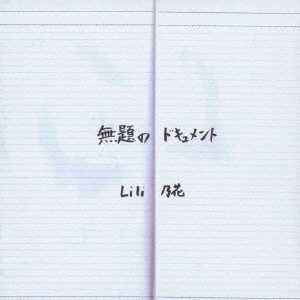 無題の ドキュメント
Lili 乃花